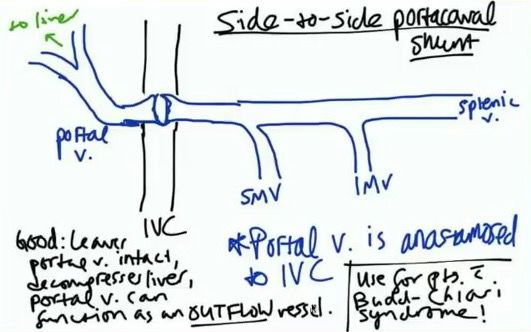 Side-to-side portacaval
shunt
to liver
portal
v.
splenic
v.
SMV
IMV
IVC
Good: Leaves
portal v. intact,
decompresses liver,
portal v. can
function as an OUTFLOW vessel.
*Portal v. is anastomosed
to IVC
Use for pts. c̄
Budd-Chiari
syndrome!